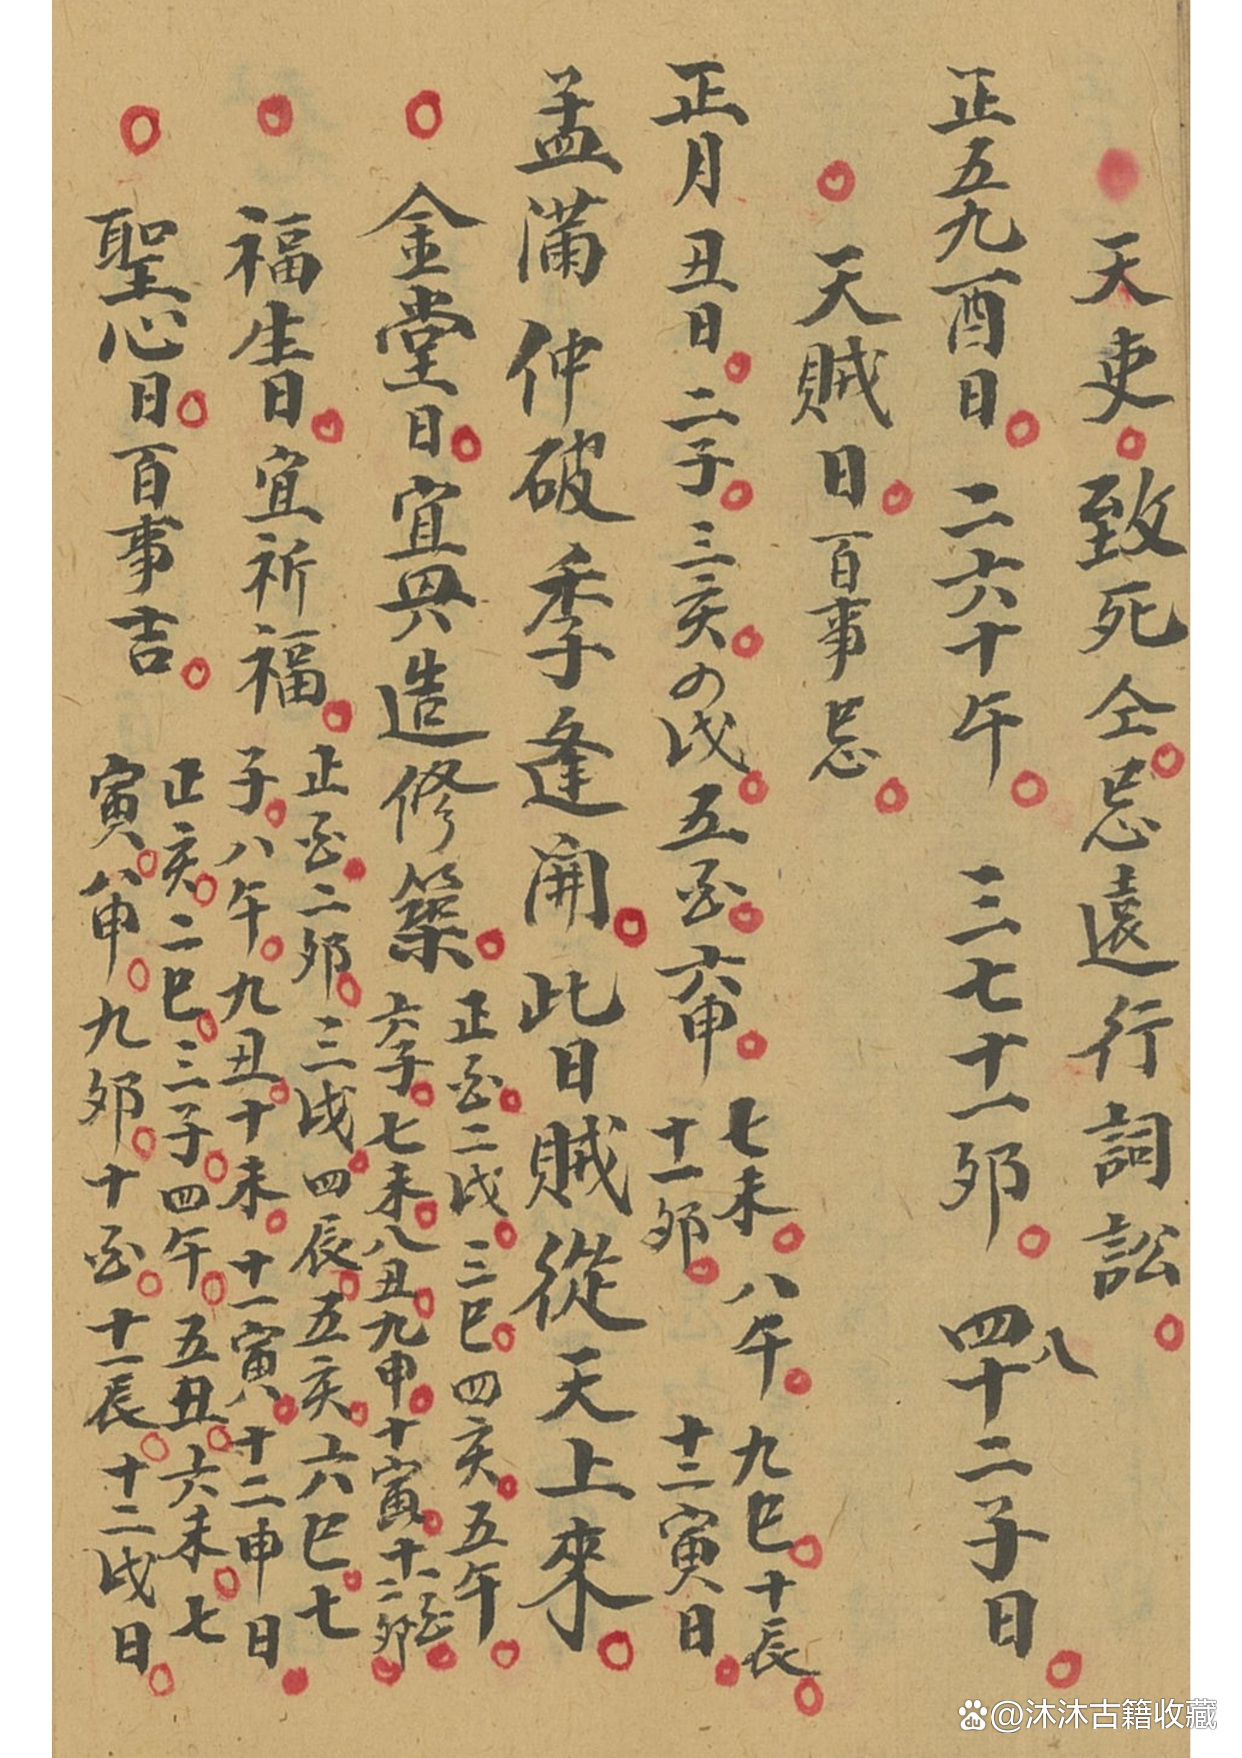 天吏致死仝忌遠行詞訟
正五九酉日二六十午三七十一夘四八十二子日
天賊日百事忌
正月丑日二子三亥四戌五酉六申七未八午九巳十辰十一夘十二寅日
孟滿仲破季逢開此日賊從天上來
金堂日宜興造修築正酉二戌三巳四亥五午六子七未八丑九申十寅十一酉十二夘
福生日宜祈福正酉二夘三戌四辰五亥六巳七子八午九丑十未十一寅十二申日
聖心日百事吉正亥二巳三子四午五丑六未七寅八申九夘十酉十一辰十二戌日
@沐沐古籍收藏